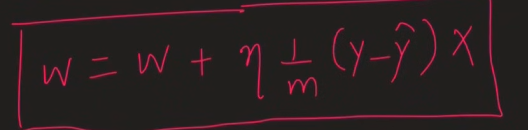 w = w + η 1/m (y-ŷ) x